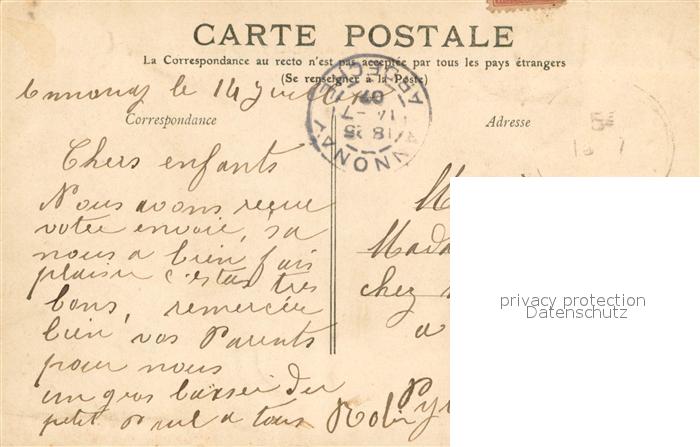 CARTE POSTALE
La Correspondance au recto n'est pas acceptée par tous les pays étrangers
(Se renseigner à la Poste)
Annonay le 14 Juillet
Correspondance
Adresse
ANNONAY
18 35
14 -7
07
ARDECHE
Chers enfants
Nous avons reçue
votre envoie, sa
nous a bien fais
plaisir c'etas tres
bons, remerciée
bien vos Parents
pour nous
un gros baiser du
petit Paul a tous
Robin
M
Mada
chez
a
Pyr
privacy protection
Datenschutz